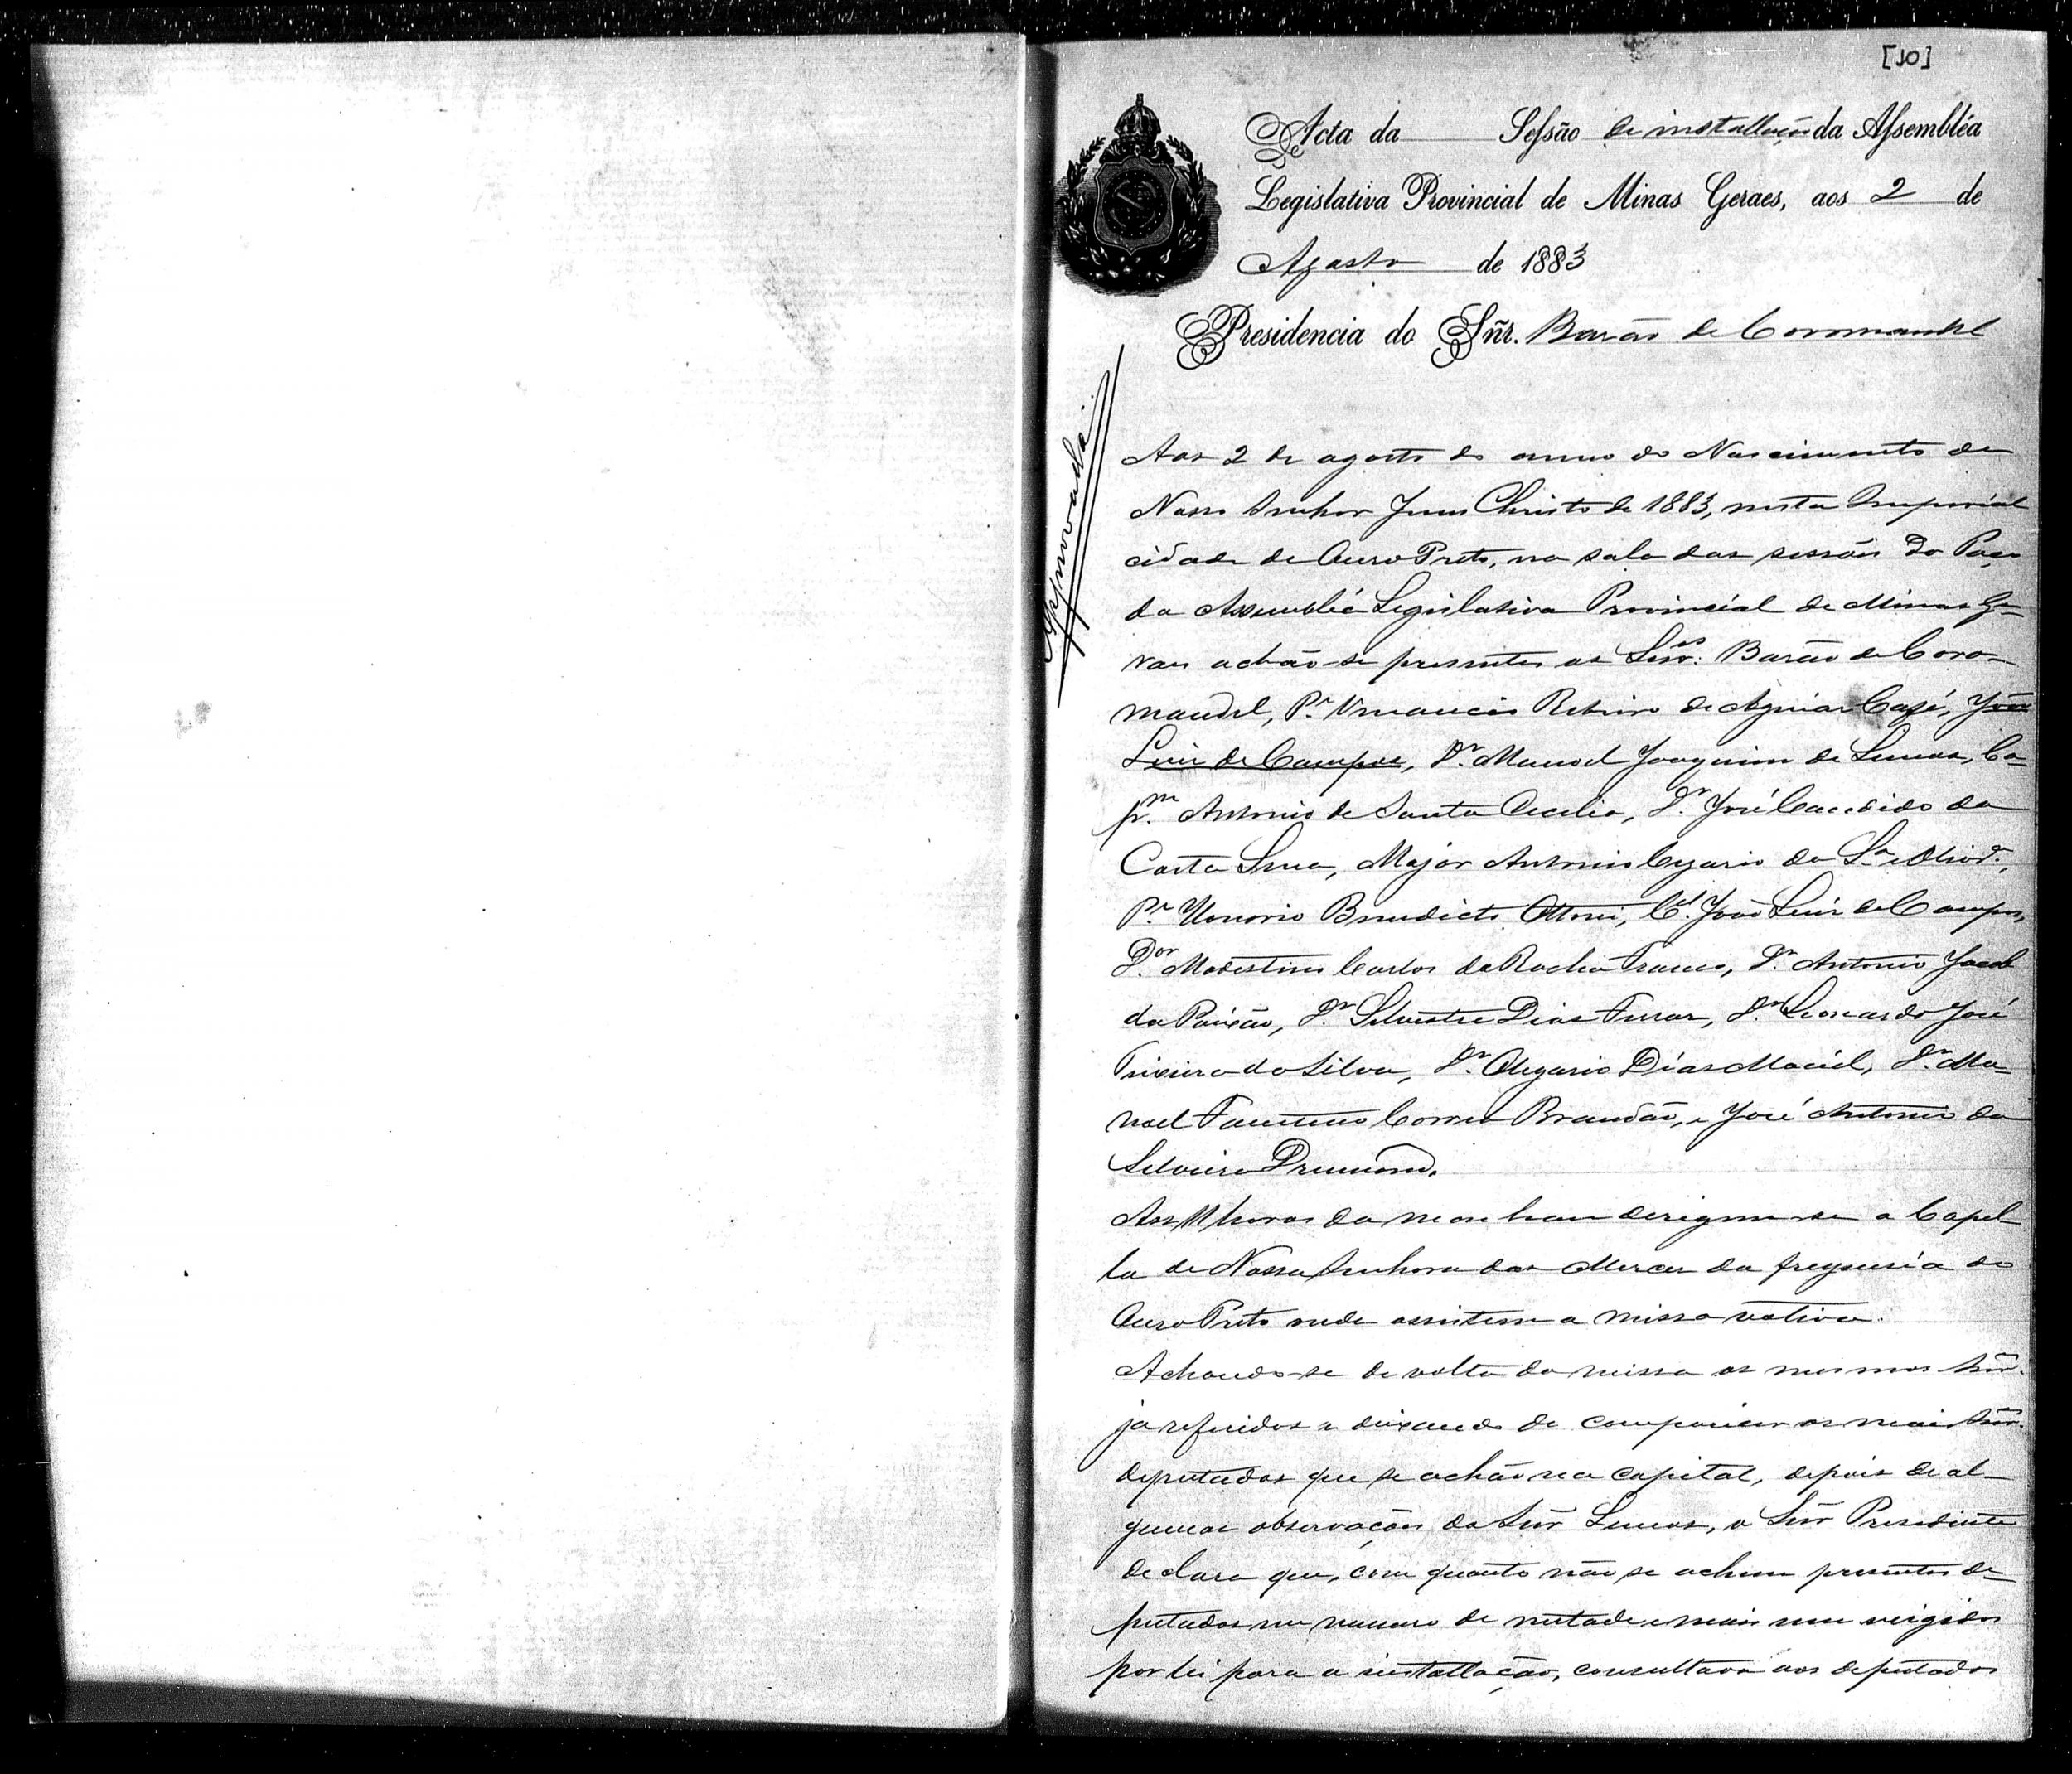 [10]
Acta da Sessão de installação da Assembléa
Legislativa Provincial de Minas Geraes, aos 2 de
Agosto de 1883
Presidencia do Sñr. Barão de Coromandel
Approvada
Aos 2 de agosto do anno do Nascimento de
Nosso Senhor Jesus Christo de 1883, nesta Imperial
cidade de Ouro Preto, na sala das sessões do Paço
da Assembléa Legislativa Provincial de Minas Ge-
raes achão-se presentes os Snr.es Barão de Coro-
mandel, P.e Venancio Ribeiro de Aguiar Café, João
Luiz de Campos, Dr. Manoel Joaquim de Lemos, Ca-
p.m Antonio de Santa Cecilia, Dr. José Candido da
Costa Sena, Major Antonio Cezario da S.a e Olivr.a,
P.e Honorio Benedicto Ottoni, C.el João Luiz de Campos,
D.or Modestino Carlos da Rocha Franco, Dr. Antonio Jacob
da Paixão, Dr. Silvestre Dias Ferraz, Dr. Leonardo José
Teixeira da Silva, Dr. Olegario Dias Maciel, Dr. Ma-
noel Faustino Correa Brandão, e José Antonio da
Silveira Drumond.
Aas 11 horas da manhan dirigem-se a Capel-
la de Nossa Senhora das Merces da freguesia de
Ouro Preto onde assistem a missa votiva.
Achando-se de volta da missa os mesmos Snr.
ja referidos e deixando de comparecer os mais Snr.
deputados que se achão na capital, depois de al-
gumas observações do Snr Lemos, o Snr Presidente
declara que, com quanto não se achem presentes de-
putados em numero de metade e mais um exigidos
por lei para a installação, consultava aos deputados